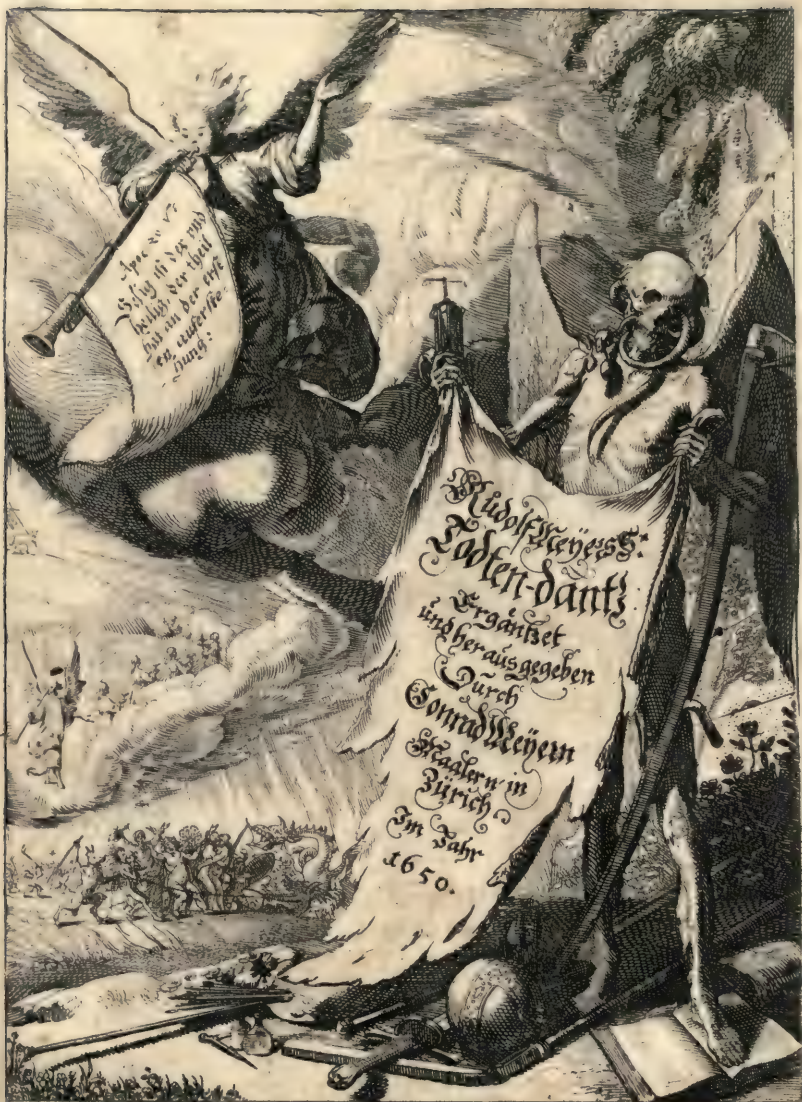 Apoc. 20 V.
Selig ist der und
heilig, der theil
hat an der erst
en aufferste
hung:
Rudolf Meÿerß:
Todten-dantz
Ergäntzet
und herausgegeben
Durch
Conrad Meÿern
Maalern in
Zürich
Im Jahr
1650.